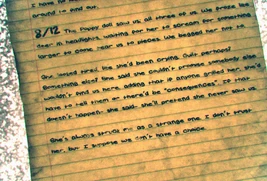 around to find out.
8/12 The puppy doll saw us all three of us. We froze like
deer in headlights, waiting for her to scream for something
larger to come tear us to pieces. We begged her not to
Our looked like she'd been crying. Guilt perhaps?
Something else? She said she couldn't promise somebody else
wouldn't find us here, adding that if anyone grilled her, she'd
have to tell them or there'd be "consequences". If that
doesn't happen, she said, she'd pretend she never saw us.
She's always struck me as a strange one. I don't trust
her, but I suppose we don't have a choice.